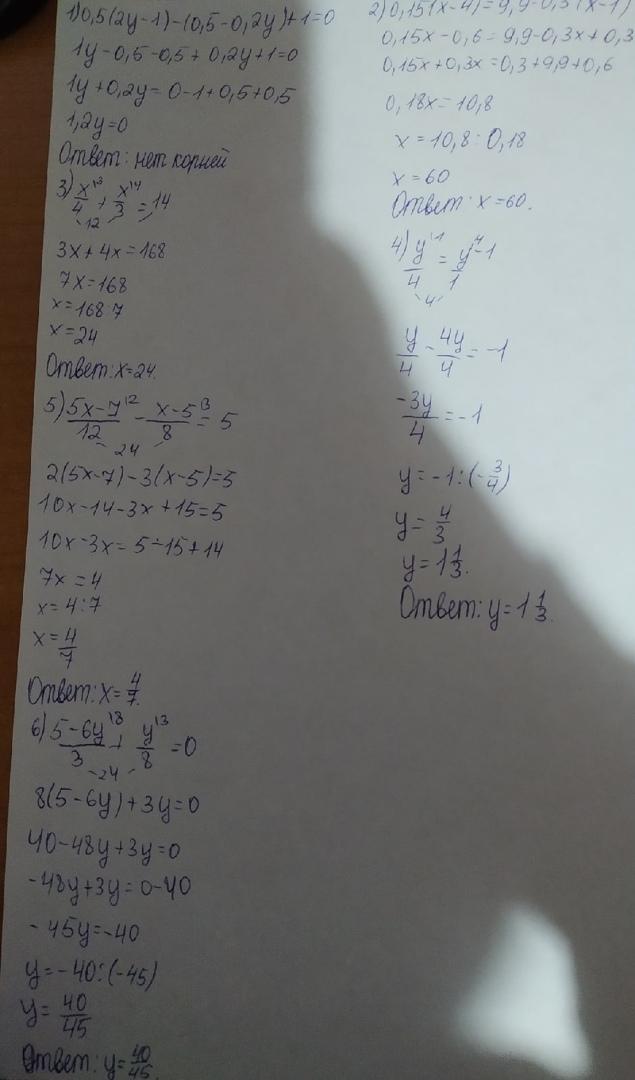 1) 0,5(2y-1)-(0,5-0,2y)+1=0
1y-0,5-0,5+0,2y+1=0
1y+0,2y=0-1+0,5+0,5
1,2y=0
Ответ: нет корней
2) 0,15(x-4)=9,9-0,3(x-1)
0,15x-0,6=9,9-0,3x+0,3
0,15x+0,3x=0,3+9,9+0,6
0,18x=10,8
x=10,8:0,18
x=60
Ответ: x=60.
3) x/4 + x/3 = 14
12
3x+4x=168
7x=168
x=168:7
x=24
Ответ: x=24.
4) y/4 = y-1/1
4
y/4 - 4y/4 = -1
-3y/4 = -1
y=-1:(-3/4)
y=4/3
y=1 1/3.
Ответ: y=1 1/3.
5) 5x-7/12 - x-5/8 = 5
24
2(5x-7)-3(x-5)=5
10x-14-3x+15=5
10x-3x=5-15+14
7x=4
x=4:7
x=4/7
Ответ: x=4/7.
6) 5-6y/3 + y/8 = 0
24
8(5-6y)+3y=0
40-48y+3y=0
-48y+3y=0-40
-45y=-40
y=-40:(-45)
y=40/45
Ответ: y=40/45.